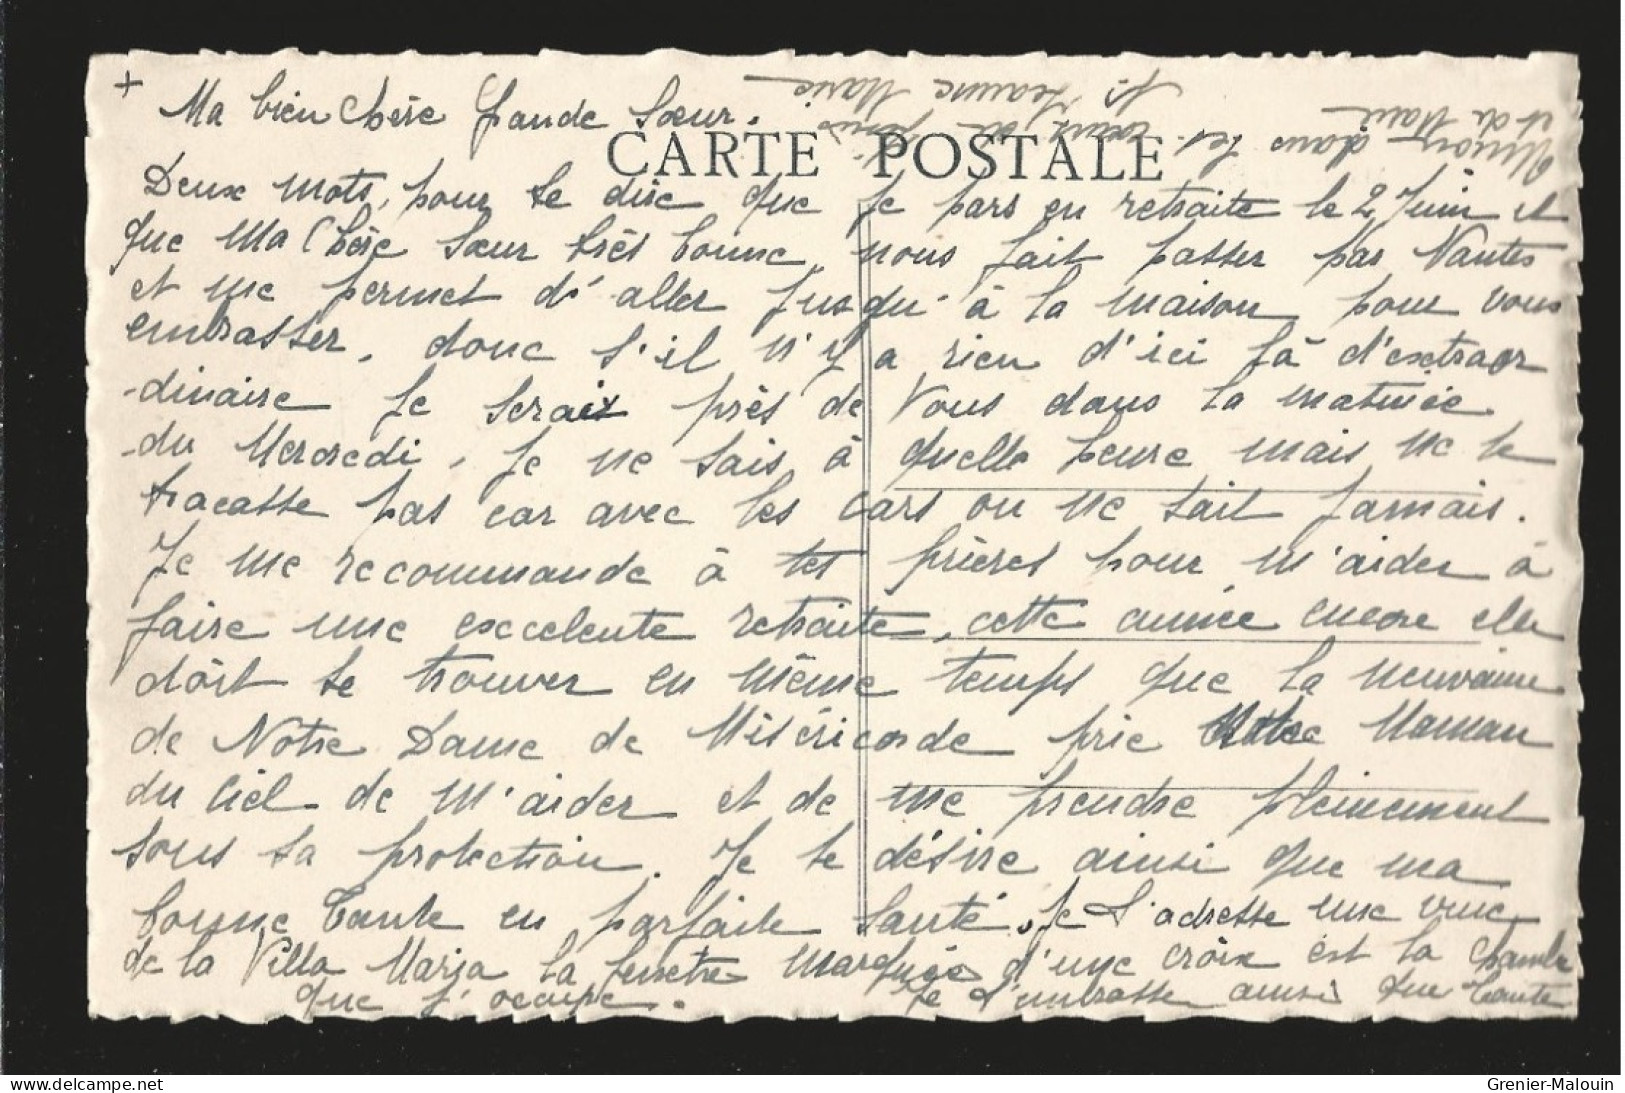 +
Ma bien Chère Grande Sœur.
CARTE POSTALE
Deux mots, pour te dire que je pars en retraite le 2 Juin et
que Ma Chère Sœur très bonne, nous fait passer par Nantes
et me permet d'aller jusqu'à la maison pour vous
embrasser, donc s'il n'y a rien d'ici là d'extraor
-dinaire je serais près de Vous dans la matinée
-du Mercredi, je ne sais à quelle heure mais ne te
tracasse pas car avec les cars on ne sait jamais.
Je me recommande à tes prières pour m'aider à
faire une excelente retraite, cette année encore elle
doit se trouver en même temps que la neuvaine
de Notre Dame de Miséricorde prie Notre Maman
du Ciel de m'aider et de me prendre pleinement
sous sa protection. Je te désire ainsi que ma
bonne Tante en parfaite santé. Je t'adresse une vue
de la Villa Maria la fenêtre marquée d'une croix est la chambre
que j'occupe. Je t'embrasse ainsi que tante
Union dans les cœurs de Jésus
et de Marie
Sr Jeanne Marie
delcampe.net
Grenier-Malouin